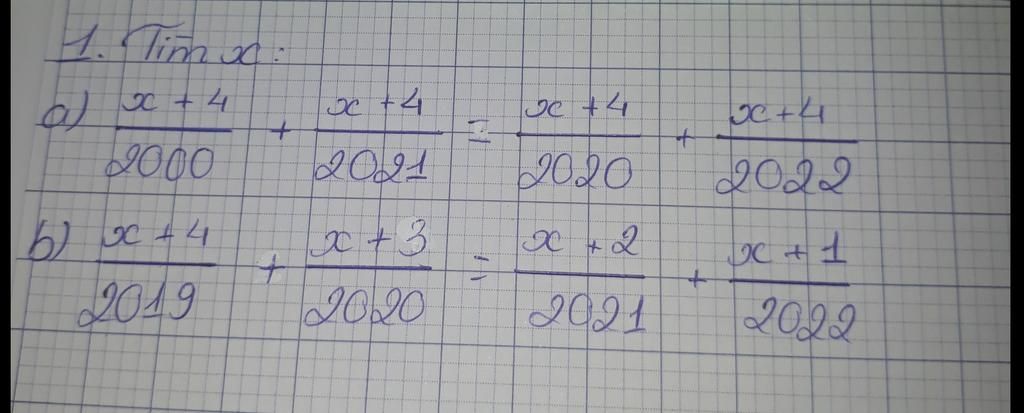 1. Tìm x:
a) \frac{x+4}{2000} + \frac{x+4}{2021} = \frac{x+4}{2020} + \frac{x+4}{2022}
b) \frac{x+4}{2019} + \frac{x+3}{2020} = \frac{x+2}{2021} + \frac{x+1}{2022}